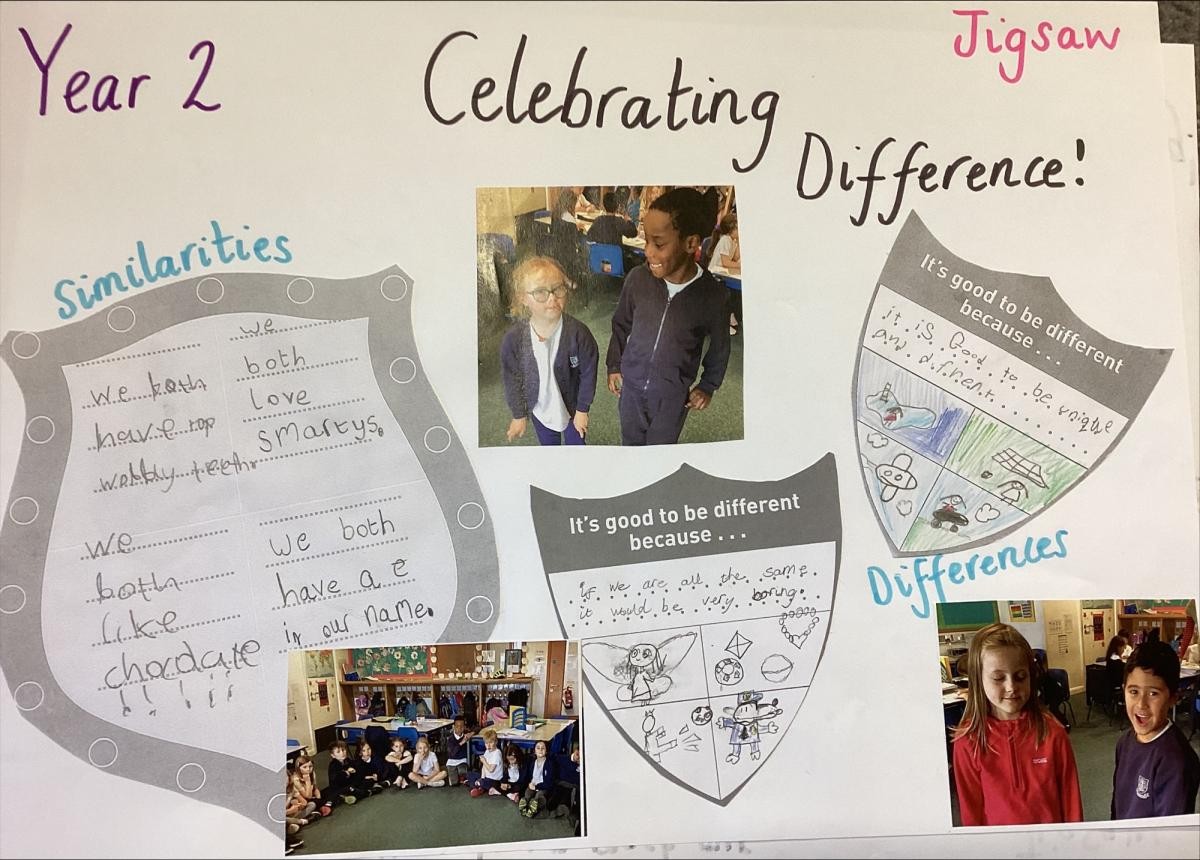 Year 2
Celebrating
Difference!
Jigsaw
Similarities
we both
have
wobbly teeth
we
both
love
smartys.
we
both
like
chocolate
we both
have a e
in our name.
It's good to be different
because . . .
if we are all the same
it would be very boring.
It's good to be different
because . . .
it is Good to be unique
and difrent
Differences